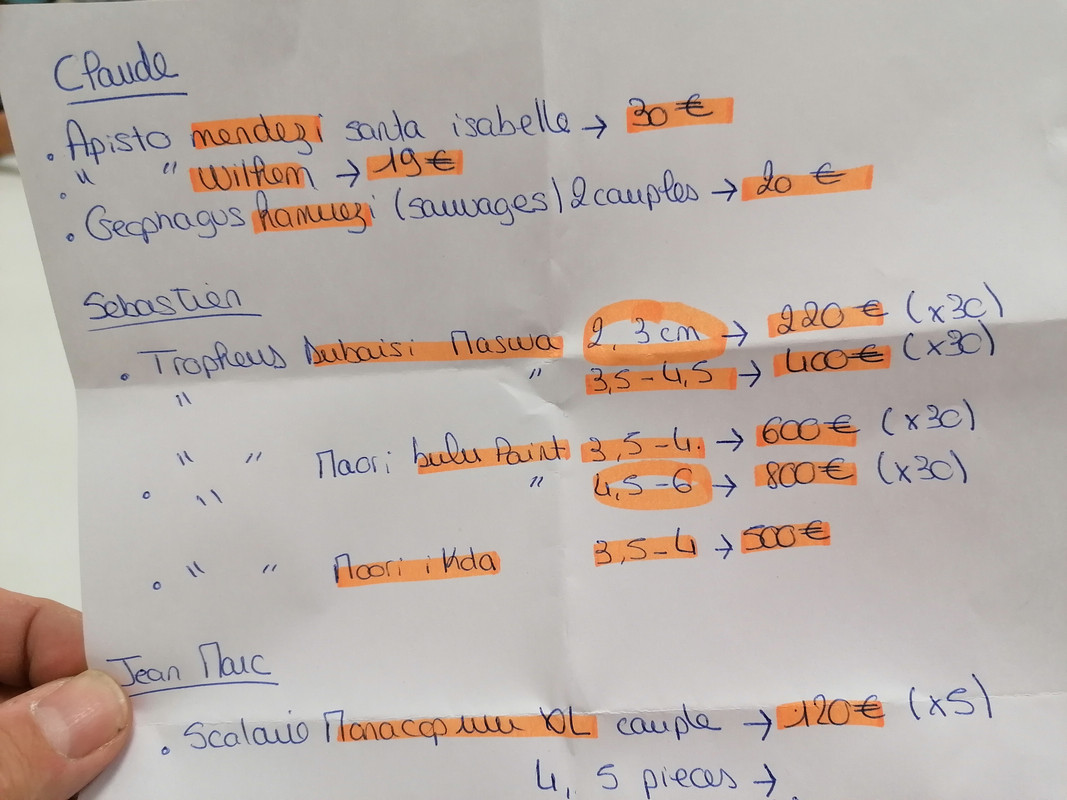 Claude
. Apisto mendezi santa isabelle → 30 €
. " " Wilhem → 19 €
. Geophagus (sauvages) 2 couples → 20 €
Sebastien
. Tropheus Dubaisi Maswa 2, 3 cm → 220 € (x30)
" " 3,5-4,5 → 400 € (x30)
" " Moori bulu Point 3,5-4. → 600 € (x30)
. " " 4,5-6 → 800 € (x30)
. " " Moori iKda 3,5-4 → 500 €
Jean Marc
. Scalaire XL couple → 120 € (x5)
4, 5 pieces →